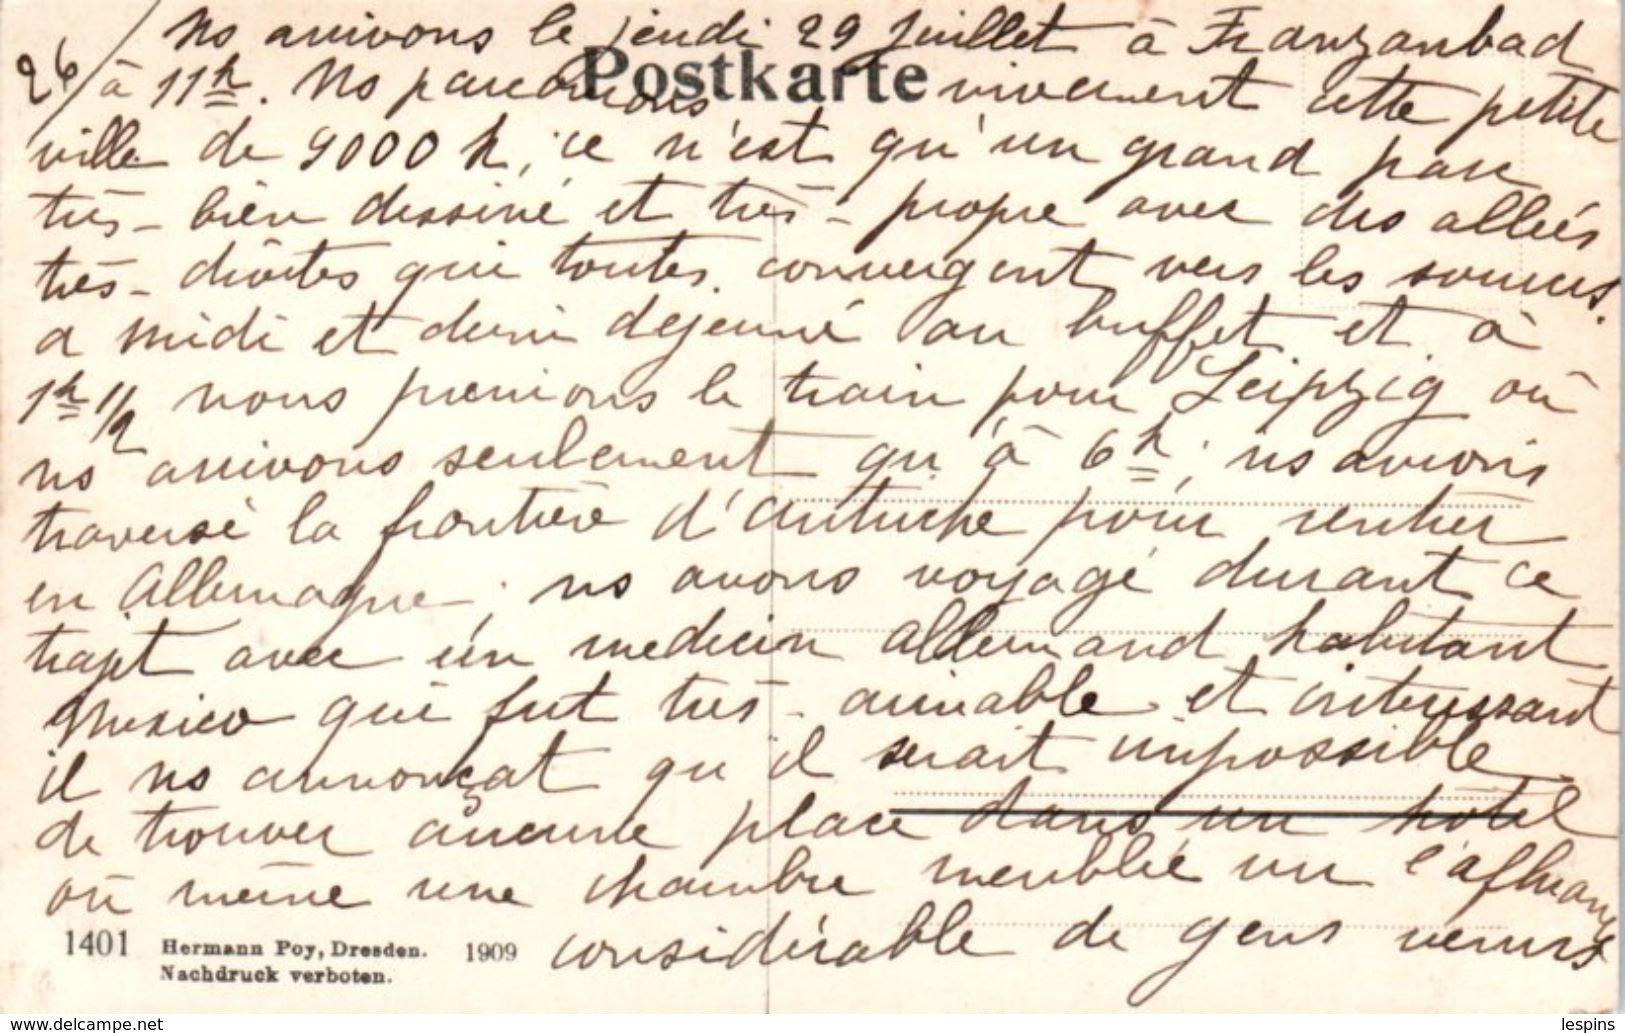 26/ Ns arrivons le jeudi 29 Juillet à Franzanbad
Postkarte
à 11h. Ns parcourons vivement cette petite
ville de 9000 h, ce n'est qu'un grand parc
très-bien dessiné et très-propre avec des allées
très-droites qui toutes convergent vers les sources.
a midi et demi dejeuné au buffet et à
1h 1/2 nous prenions le train pour Leipzig où
ns arrivons seulement qu'à 6h; ns avions
traversé la frontière d'Autriche pour rentrer
en Allemagne; ns avons voyagé durant ce
trajet avec un medecin allemand habitant
Mexico qui fut très-aimable et interessant
il ns annonçat qu'il serait impossible
de trouver aucune place dans un hôtel
où même une chambre meublée vu l'afluance
considérable de gens venus
1401 Hermann Poy, Dresden. 1909
Nachdruck verboten.
www.delcampe.net
lespins